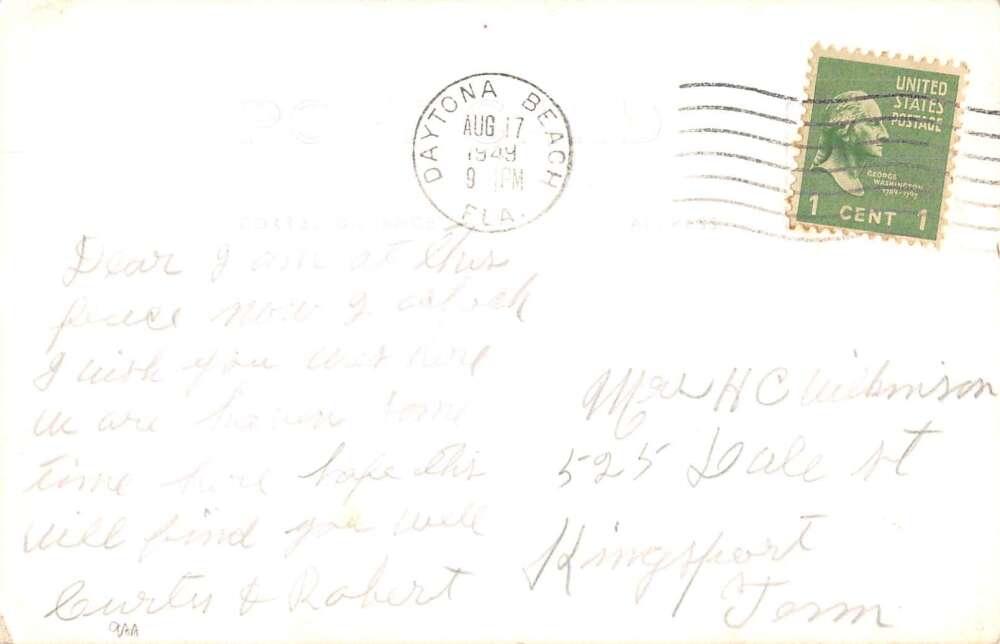 DAYTONA BEACH
AUG 17
1949
9 PM
FLA.
UNITED
STATES
POSTAGE
GEORGE
WASHINGTON
1789-1797
1 CENT 1
Dear I am at this
peace now 9 oclock
I wish you was here
we are haven some
time here hope this
will find you well
Curtis & Robert
9AA
H C Wilkinson
525 Dale st
Kingsport
Tenn